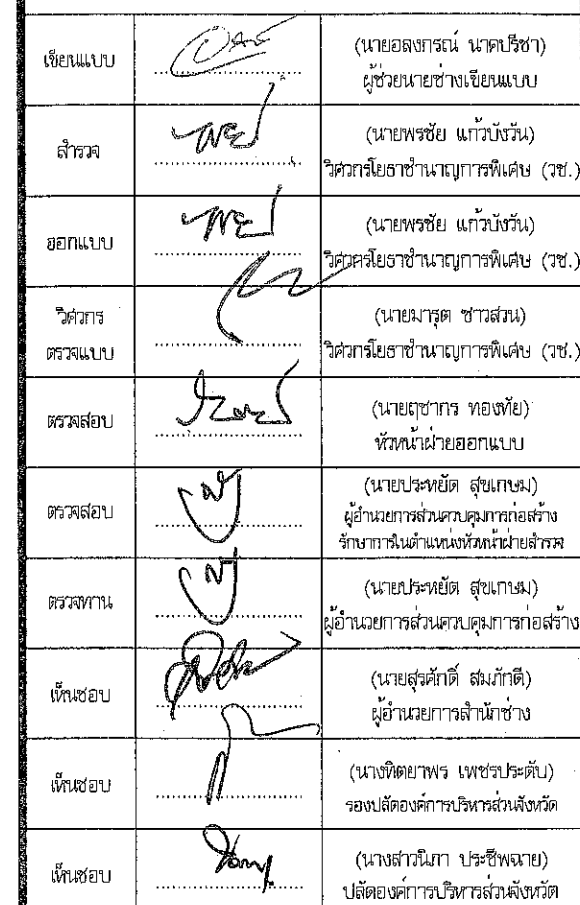 เขียนแบบ
(นายอลงกรณ์ นาคปรีชา)
ผู้ช่วยนายช่างเขียนแบบ
สำรวจ
(นายพรชัย แก้วบังวัน)
วิศวกรโยธาชำนาญการพิเศษ (วช.)
ออกแบบ
(นายพรชัย แก้วบังวัน)
วิศวกรโยธาชำนาญการพิเศษ (วช.)
วิศวกร
ตรวจแบบ
(นายมารุต ซาวส่วน)
วิศวกรโยธาชำนาญการพิเศษ (วช.)
ตรวจสอบ
(นายฤชากร ทองทัย)
หัวหน้าฝ่ายออกแบบ
ตรวจสอบ
(นายประหยัด สุขเกษม)
ผู้อำนวยการส่วนควบคุมการก่อสร้าง
รักษาการในตำแหน่งหัวหน้าฝ่ายสำรวจ
ตรวจทาน
(นายประหยัด สุขเกษม)
ผู้อำนวยการส่วนควบคุมการก่อสร้าง
เห็นชอบ
(นายสุรศักดิ์ สมภักดี)
ผู้อำนวยการสำนักช่าง
เห็นชอบ
(นางทิตยาพร เพชรประดับ)
รองปลัดองค์การบริหารส่วนจังหวัด
เห็นชอบ
(นางสาวนิภา ประชีพฉาย)
ปลัดองค์การบริหารส่วนจังหวัด